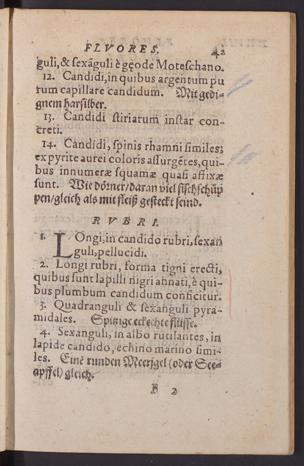 FLVORES. 42
guli, & sexãguli è geode Moteschano.
12. Candidi, in quibus argentum pu
rum capillare candidum. Mit gedi-
gnem harsilber.
13. Candidi stiriarum instar con-
creti.
14. Candidi, spinis rhamni similes;
ex pyrite aurei coloris assurgẽtes, qui-
bus innumeræ squamæ quasi affixæ
sunt. Wie dörner/daran viel fischschüp
pen/gleich als mit fleiß gesteckt seind.
RVBRI.
1. LOngi, in candido rubri, sexan
guli, pellucidi.
2. Longi rubri, forma tigni erecti,
quibus sunt lapilli nigri ahnati, è qui-
bus plumbum candidum conficitur.
3. Quadranguli & sexanguli pyra-
midales. Spitzige eckechte flüsse.
4. Sexanguli, in albo rutilantes, in
lapide candido, echino marino simi-
les. Eine runden Meerigel (oder See-
apffel) gleich.
F 2